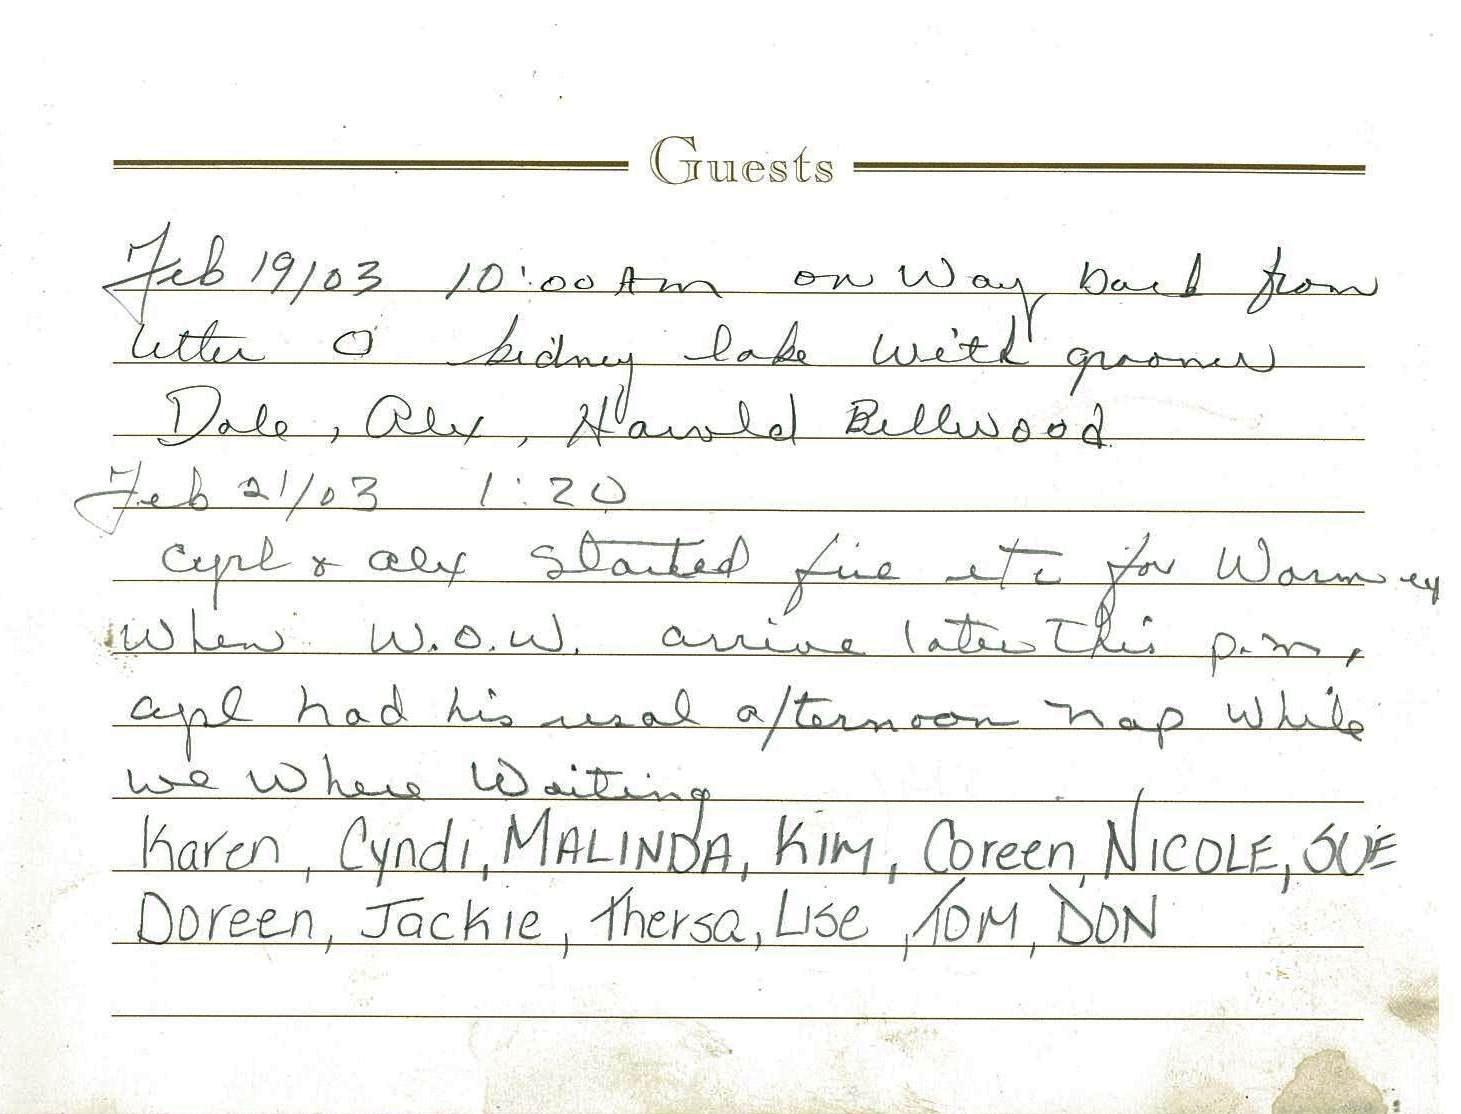 Guests
Feb 19/03 10:00 Am on Way back from
letter O kidney lake with groomer
Dale, Alex, Harold Bellwood
Feb 21/03 1:20
Cyrl & alex started fire etc for Warm
When W.O.W. arrive later this p.m,
Cyrl had his usal afternoon nap while
we where waiting
Karen, Cyndi, MALINDA, KIM, Coreen, NICOLE, SUE
Doreen, Jackie, Thersa, Lise, TOM, DON